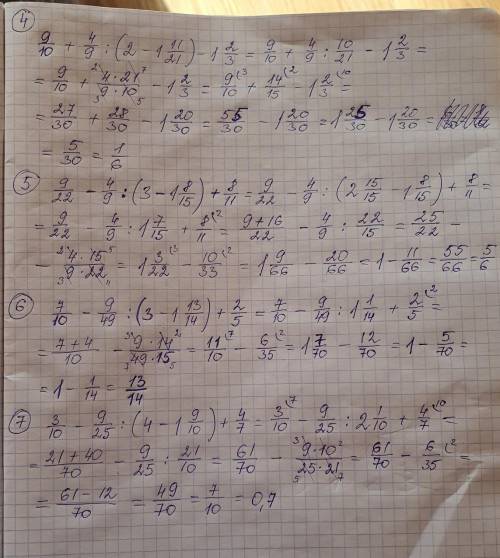 ④
9/10 + 4/9 : (2 - 1 11/21) - 1 2/3 = 9/10 + 4/9 : 10/21 - 1 2/3 =
= 9/10 + 4·21/9·10 - 1 2/3 = 9/10 + 14/15 - 1 2/3 =
= 27/30 + 28/30 - 1 20/30 = 55/30 - 1 20/30 = 1 25/30 - 1 20/30 =
= 5/30 = 1/6
⑤ 9/22 - 4/9 : (3 - 1 8/15) + 8/11 = 9/22 - 4/9 : (2 15/15 - 1 8/15) + 8/11 =
= 9/22 - 4/9 : 1 7/15 + 8/11 = 9+16/22 - 4/9 : 22/15 = 25/22 -
- 4·15/9·22 = 1 3/22 - 10/33 = 1 9/66 - 20/66 = 1 - 11/66 = 55/66 = 5/6
⑥ 7/10 - 9/49 : (3 - 1 13/14) + 2/5 = 7/10 - 9/49 : 1 1/14 + 2/5 =
= 7+4/10 - 9·14/49·15 = 11/10 - 6/35 = 1 7/70 - 12/70 = 1 - 5/70 =
= 1 - 1/14 = 13/14
⑦ 3/10 - 9/25 : (4 - 1 9/10) + 4/7 = 3/10 - 9/25 : 2 1/10 + 4/7 =
= 21+40/70 - 9/25 : 21/10 = 61/70 - 9·10/25·21 = 61/70 - 6/35 =
= 61-12/70 = 49/70 = 7/10 = 0,7